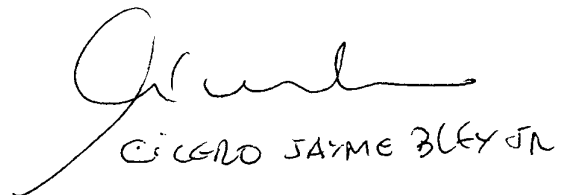 CiCERO JAYME BLEY JR